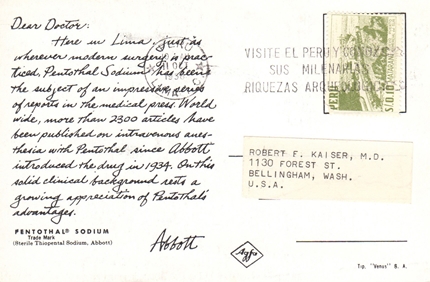 Dear Doctor:
Here in Lima, just as
wherever modern surgery is prac-
ticed, Pentothal Sodium has been
the subject of an impressive series
of reports in the medical press. World
wide, more than 2300 articles have
been published on intravenous anes-
thesia with Pentothal since Abbott
introduced the drug in 1934. On this
solid clinical background rests a
growing appreciation of Pentothal's
advantages.
Abbott
PENTOTHAL® SODIUM
Trade Mark
(Sterile Thiopental Sodium, Abbott)
VISITE EL PERU Y CONOZCA
SUS MILENARIAS
RIQUEZAS ARQUEOLOGICAS
PERU
S/0.10
ROBERT F. KAISER, M.D.
1130 FOREST ST.
BELLINGHAM, WASH.
U.S.A.
Agfa
Tip. "Venus" B. A.